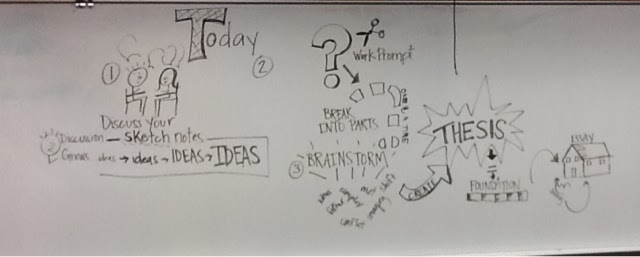 Today
①
Discuss Your
Sketch notes
Discussion —
ideas → ideas → IDEAS → IDEAS
②
?
Work Prompt
BREAK
INTO PARTS
③ BRAINSTORM
CREATE
THESIS
FOUNDATION
ESSAY